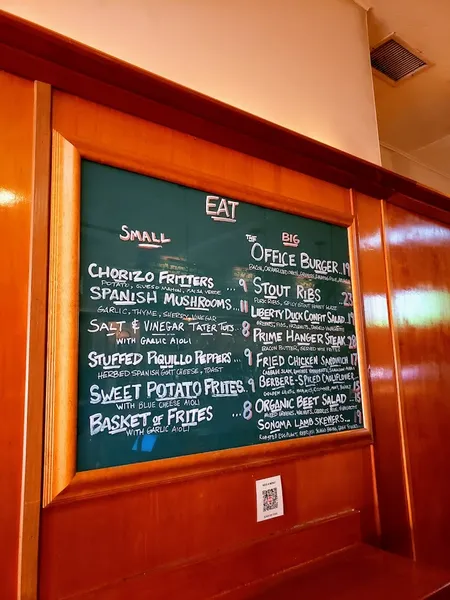 EAT
SMALL
CHORIZO FRITTERS ... 9
POTATO, CURED MAHON, SALSA VERDE
SPANISH MUSHROOMS... 11
GARLIC, THYME, SHERRY VINEGAR
SALT & VINEGAR TATER TOTS.. 8
WITH GARLIC AIOLI
STUFFED PIQUILLO PEPPERS... 9
HERBED SPANISH GOAT CHEESE, TOAST
SWEET POTATO FRITES. 9
WITH BLUE CHEESE AIOLI
BASKET OF FRITES ... 8
WITH GARLIC AIOLI
BIG
THE OFFICE BURGER. 19
STOUT RIBS 23
PORK RIBS, SPICY STOUT
LIBERTY DUCK CONFIT SALAD
PRIME HANGER STEAK
BACON BUTTER, SERVED WITH FRITES
FRIED CHICKEN SANDWICH 17
BERBERE-SPICED CAULIFLOWER
ORGANIC BEET SALAD
MIXED GREENS, WALNUTS,
SONOMA LAMB SKEWERS...
ROASTED EGGPLANT,